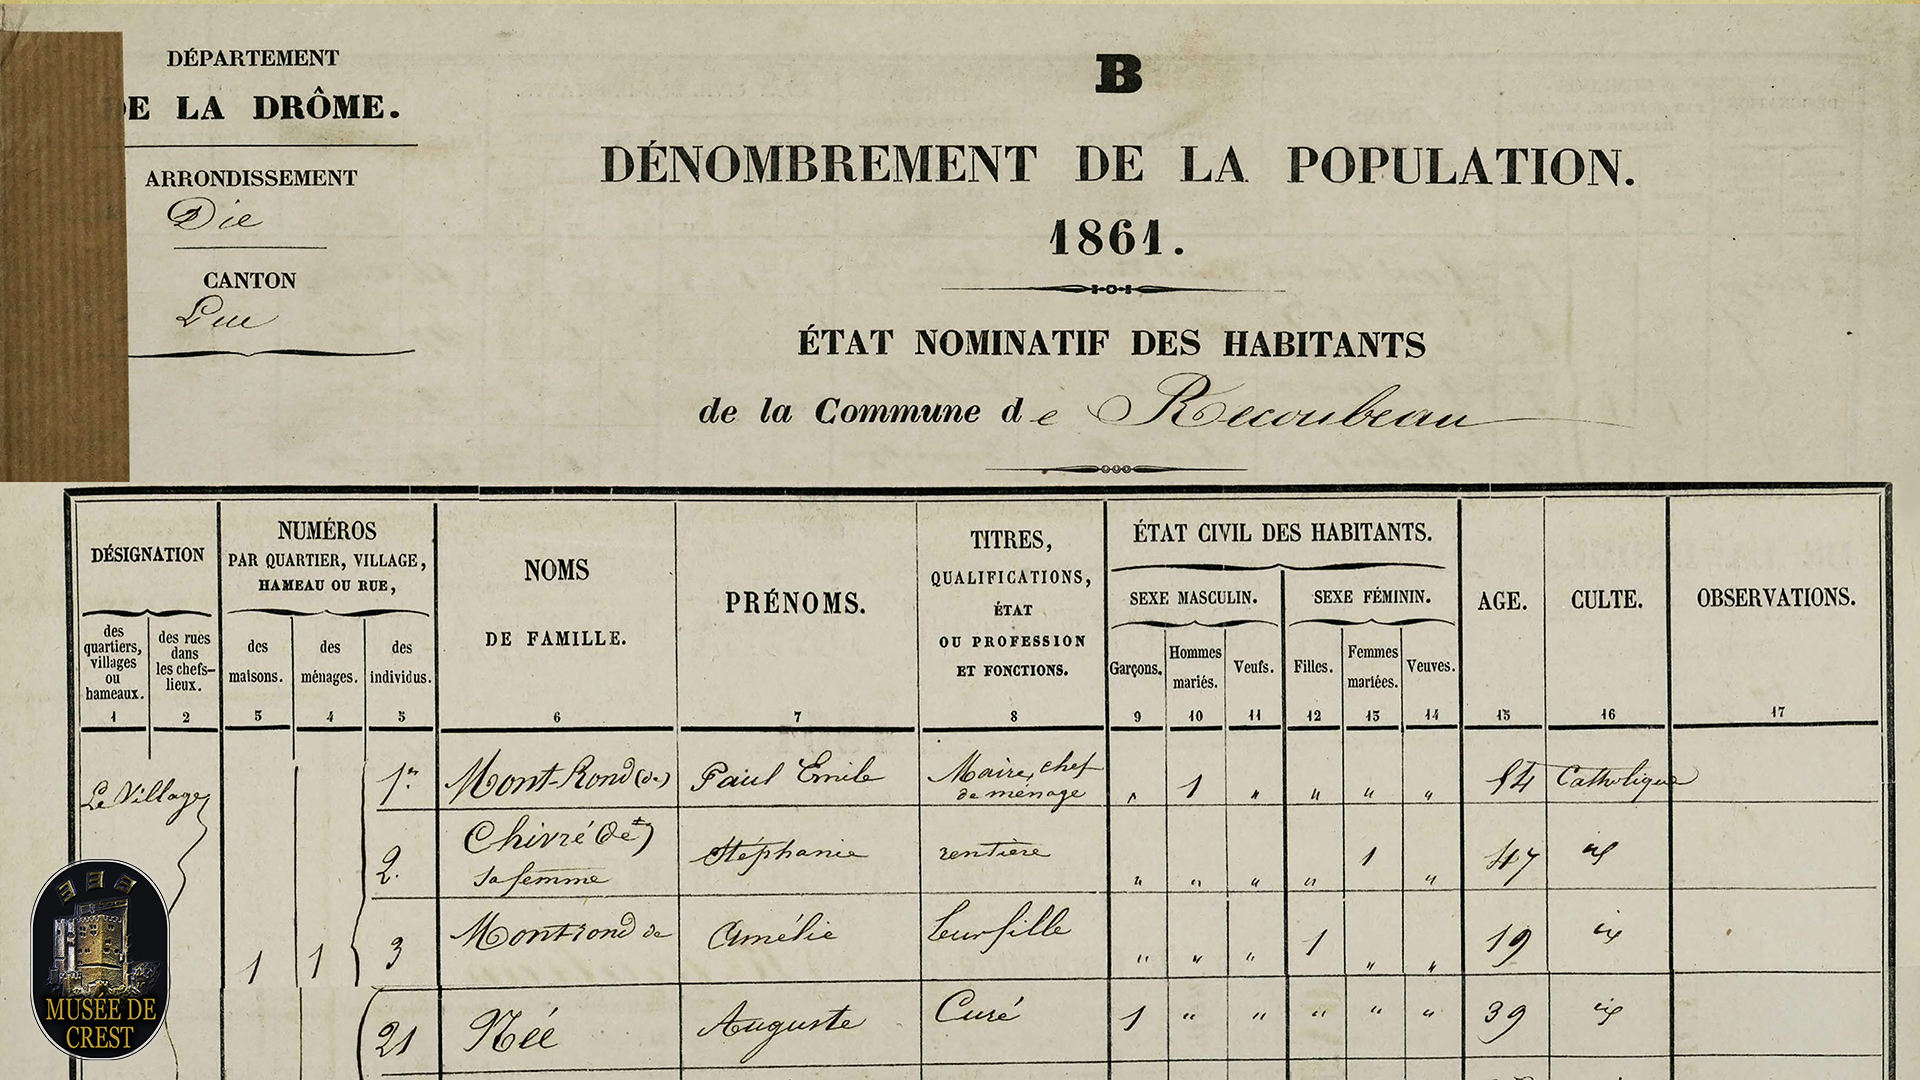 DÉPARTEMENT
DE LA DRÔME.
ARRONDISSEMENT
Die
CANTON
Luc
B
DÉNOMBREMENT DE LA POPULATION.
1861.
ÉTAT NOMINATIF DES HABITANTS
de la Commune de Recoubeau
DÉSIGNATION
des quartiers, villages ou hameaux.
des rues dans les chefs-lieux.
NUMÉROS
PAR QUARTIER, VILLAGE,
HAMEAU OU RUE,
des maisons.
des ménages.
des individus.
NOMS
DE FAMILLE.
PRÉNOMS.
TITRES,
QUALIFICATIONS,
ÉTAT
OU PROFESSION
ET FONCTIONS.
ÉTAT CIVIL DES HABITANTS.
SEXE MASCULIN.
SEXE FÉMININ.
Garçons.
Hommes mariés.
Veufs.
Filles.
Femmes mariées.
Veuves.
AGE.
CULTE.
OBSERVATIONS.
1 2 3 4 5 6 7 8 9 10 11 12 13 14 15 16 17
Le Village
1 Mont-Rond (de) Paul Emile Maire, chef de ménage " 1 " " " " 54 Catholique
2. Chivré (de) sa femme Stéphanie rentière " " " " 1 " 47 id
1 1 3 Montrond de Amélie leur fille " " " 1 " " 19 id
21 Née Auguste Curé 1 " " " " " 39 id
MUSÉE DE
CREST